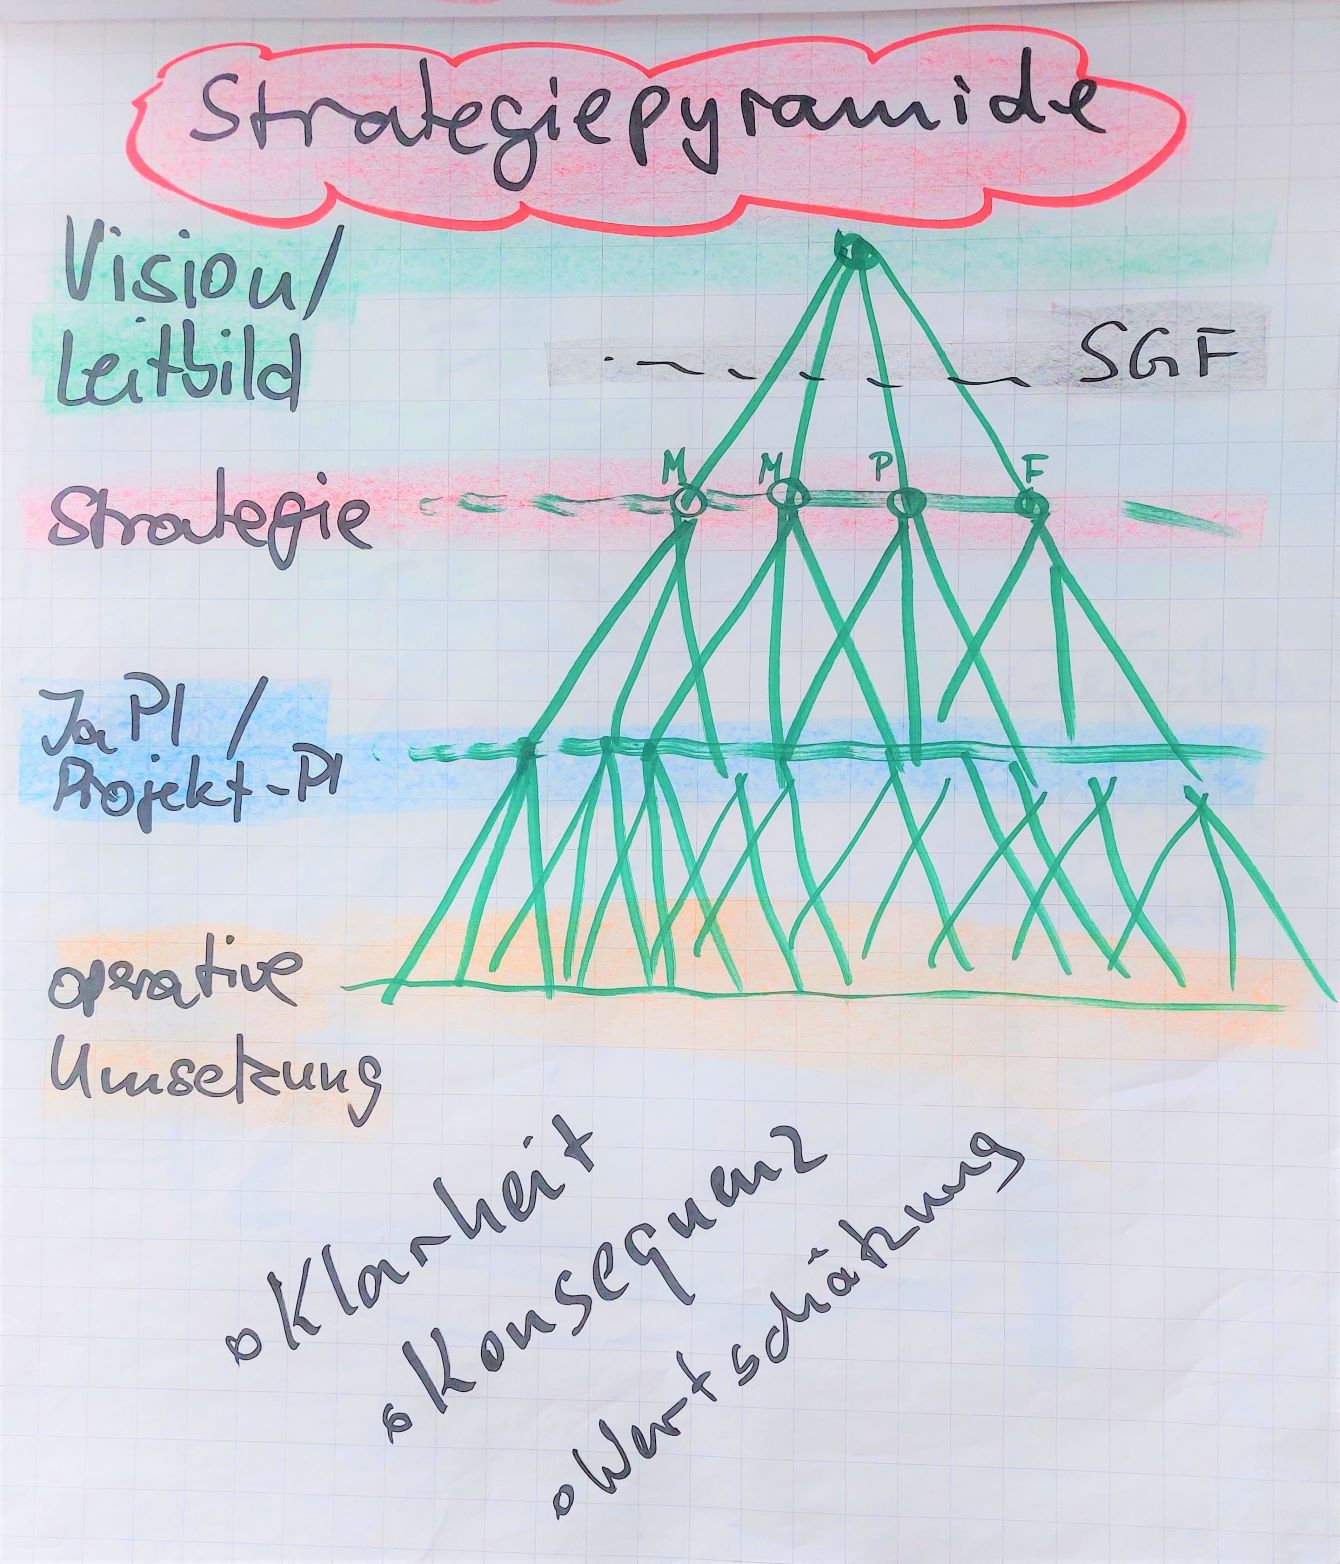 Strategiepyramide
Vision/
Leitbild
1
SGF
M M P F
Strategie
JaPl /
Projekt-Pl
operative
Umsetzung
Klarheit
Konsequenz
Wertschätzung